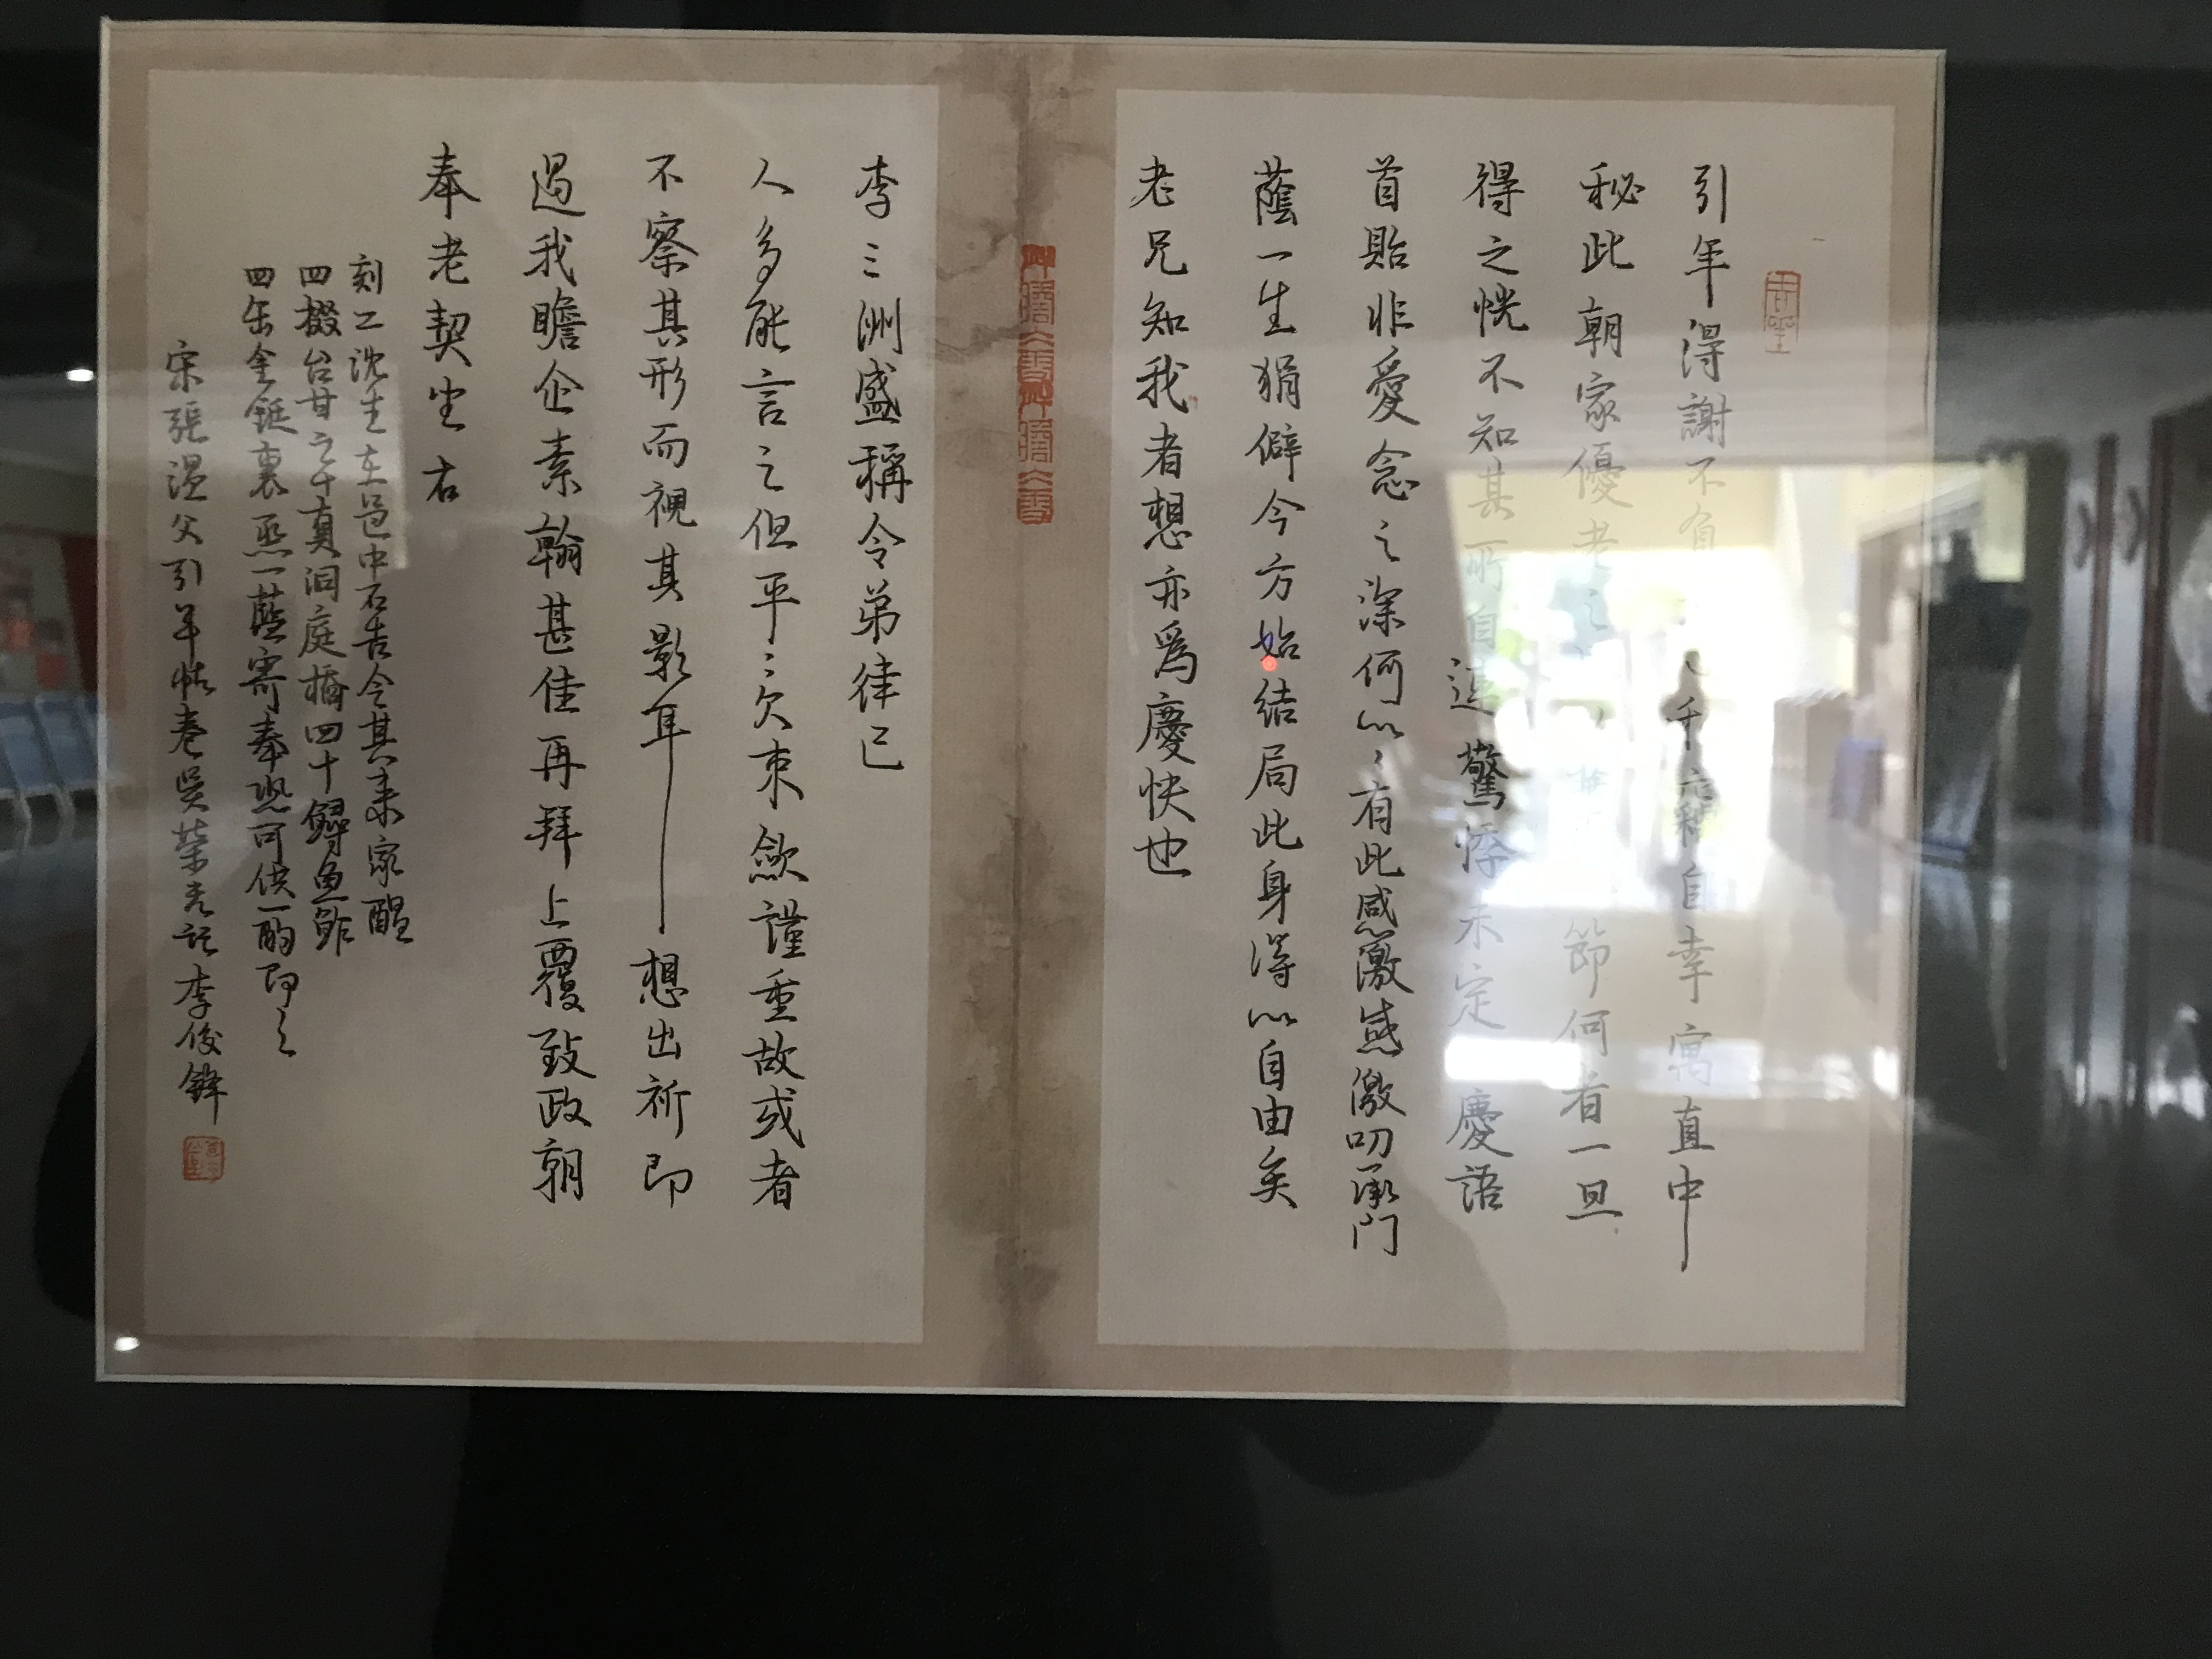 引年得謝不負
千齡自幸寓直中
秘此朝家優老之
節何者一旦
得之恍不知其所自
這驚悸未定慶語
首貽非愛念之深何以ミ有此感激感激叨承門
蔭一生狷僻今方始結局此身得以自由矣
老兄知我者想亦爲慶快也
李三洲盛稱令弟律己
人多能言之但平ミ欠束斂謹重故或者
不察其形而視其影耳想出祈即
過我瞻企素翰甚佳再拜上覆致政朝
奉老契坐右
刻工沈生在邑中否告令其來家醒
四掇台甘之午真洞庭橘四十鱘魚鮓
四缶金鋌裹烝一藍寄奉恐可供一酌即之
宋張溫父引年帖卷吳榮光記李俊鋒